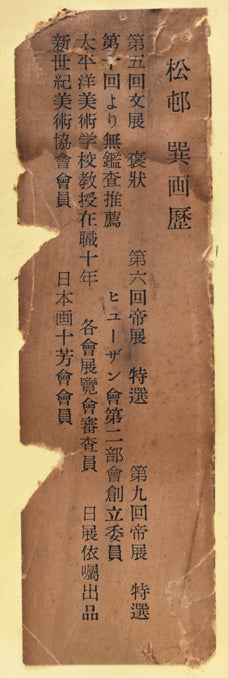 松邨 巽画歴
第五回文展 褒狀 第六回帝展 特選 第九回帝展 特選
第十回より無鑑査推薦 ヒユーザン會第二部會創立委員
太平洋美術学校教授在職十年 各會展覽會審査員 日展依囑出品
新世紀美術協會會員 日本画十芳會會員